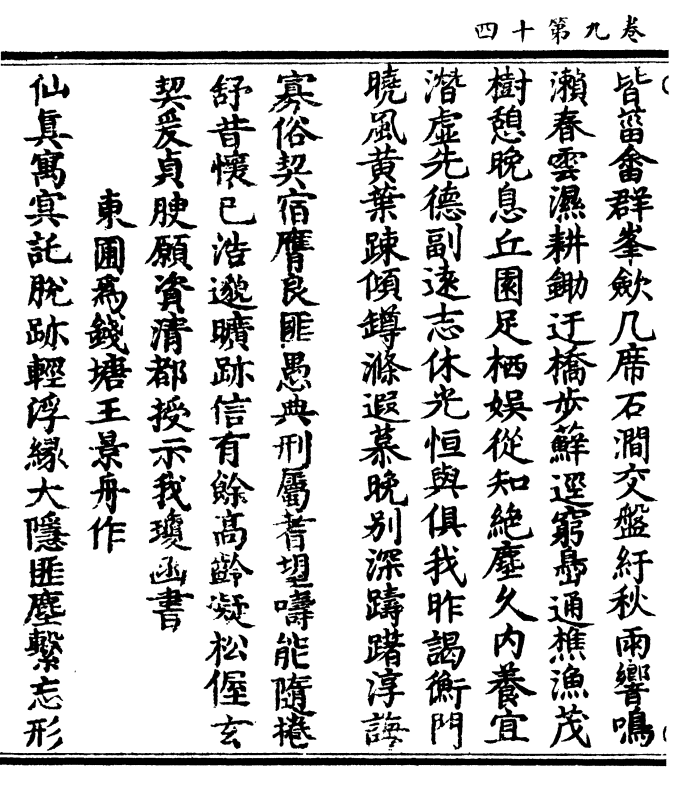 卷九第十四
皆菑畬群峯歛几席石澗交盤紆秋雨響鳴
瀨春雲濕耕鋤迂橋步蘚逕窮島通樵漁茂
樹憩晚息丘園足栖娛從知絶塵久内養宜
潛虛先德副遠志休光恒與俱我昨謁衡門
曉風黄葉踈傾鐏滌遐慕晚别深躊躇淳誨
寡俗契宿膺良匪愚典刑屬耆望嚋能隨捲
舒昔懷已浩邈曠跡信有餘高齡凝松偓玄
契爰貞腴願資清都授示我瓊函書
東圃爲錢塘王景舟作
仙真寓寞託脫跡輕浮緣大隱匪塵繫忘形